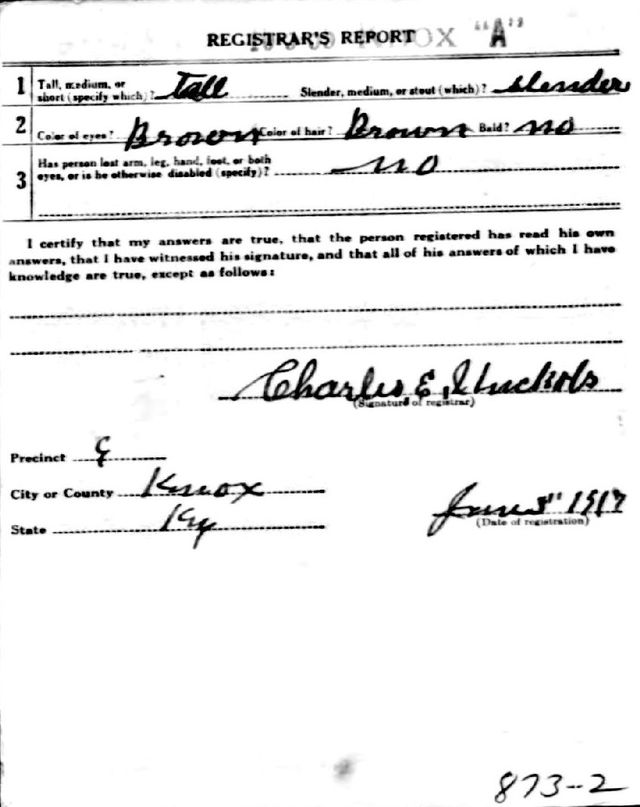 REGISTRAR'S REPORT "A"
1 Tall, medium, or short (specify which)? Tall Slender, medium, or stout (which)? slender
2 Color of eyes? Brown Color of hair? Brown Bald? no
3 Has person lost arm, leg, hand, foot, or both
eyes, or is he otherwise disabled (specify)? no
I certify that my answers are true, that the person registered has read his own
answers, that I have witnessed his signature, and that all of his answers of which I have
knowledge are true, except as follows:
Charles E.
(Signature of registrar)
Precinct
City or County Knox
State Ky
June 5" 1917
(Date of registration)
873-2